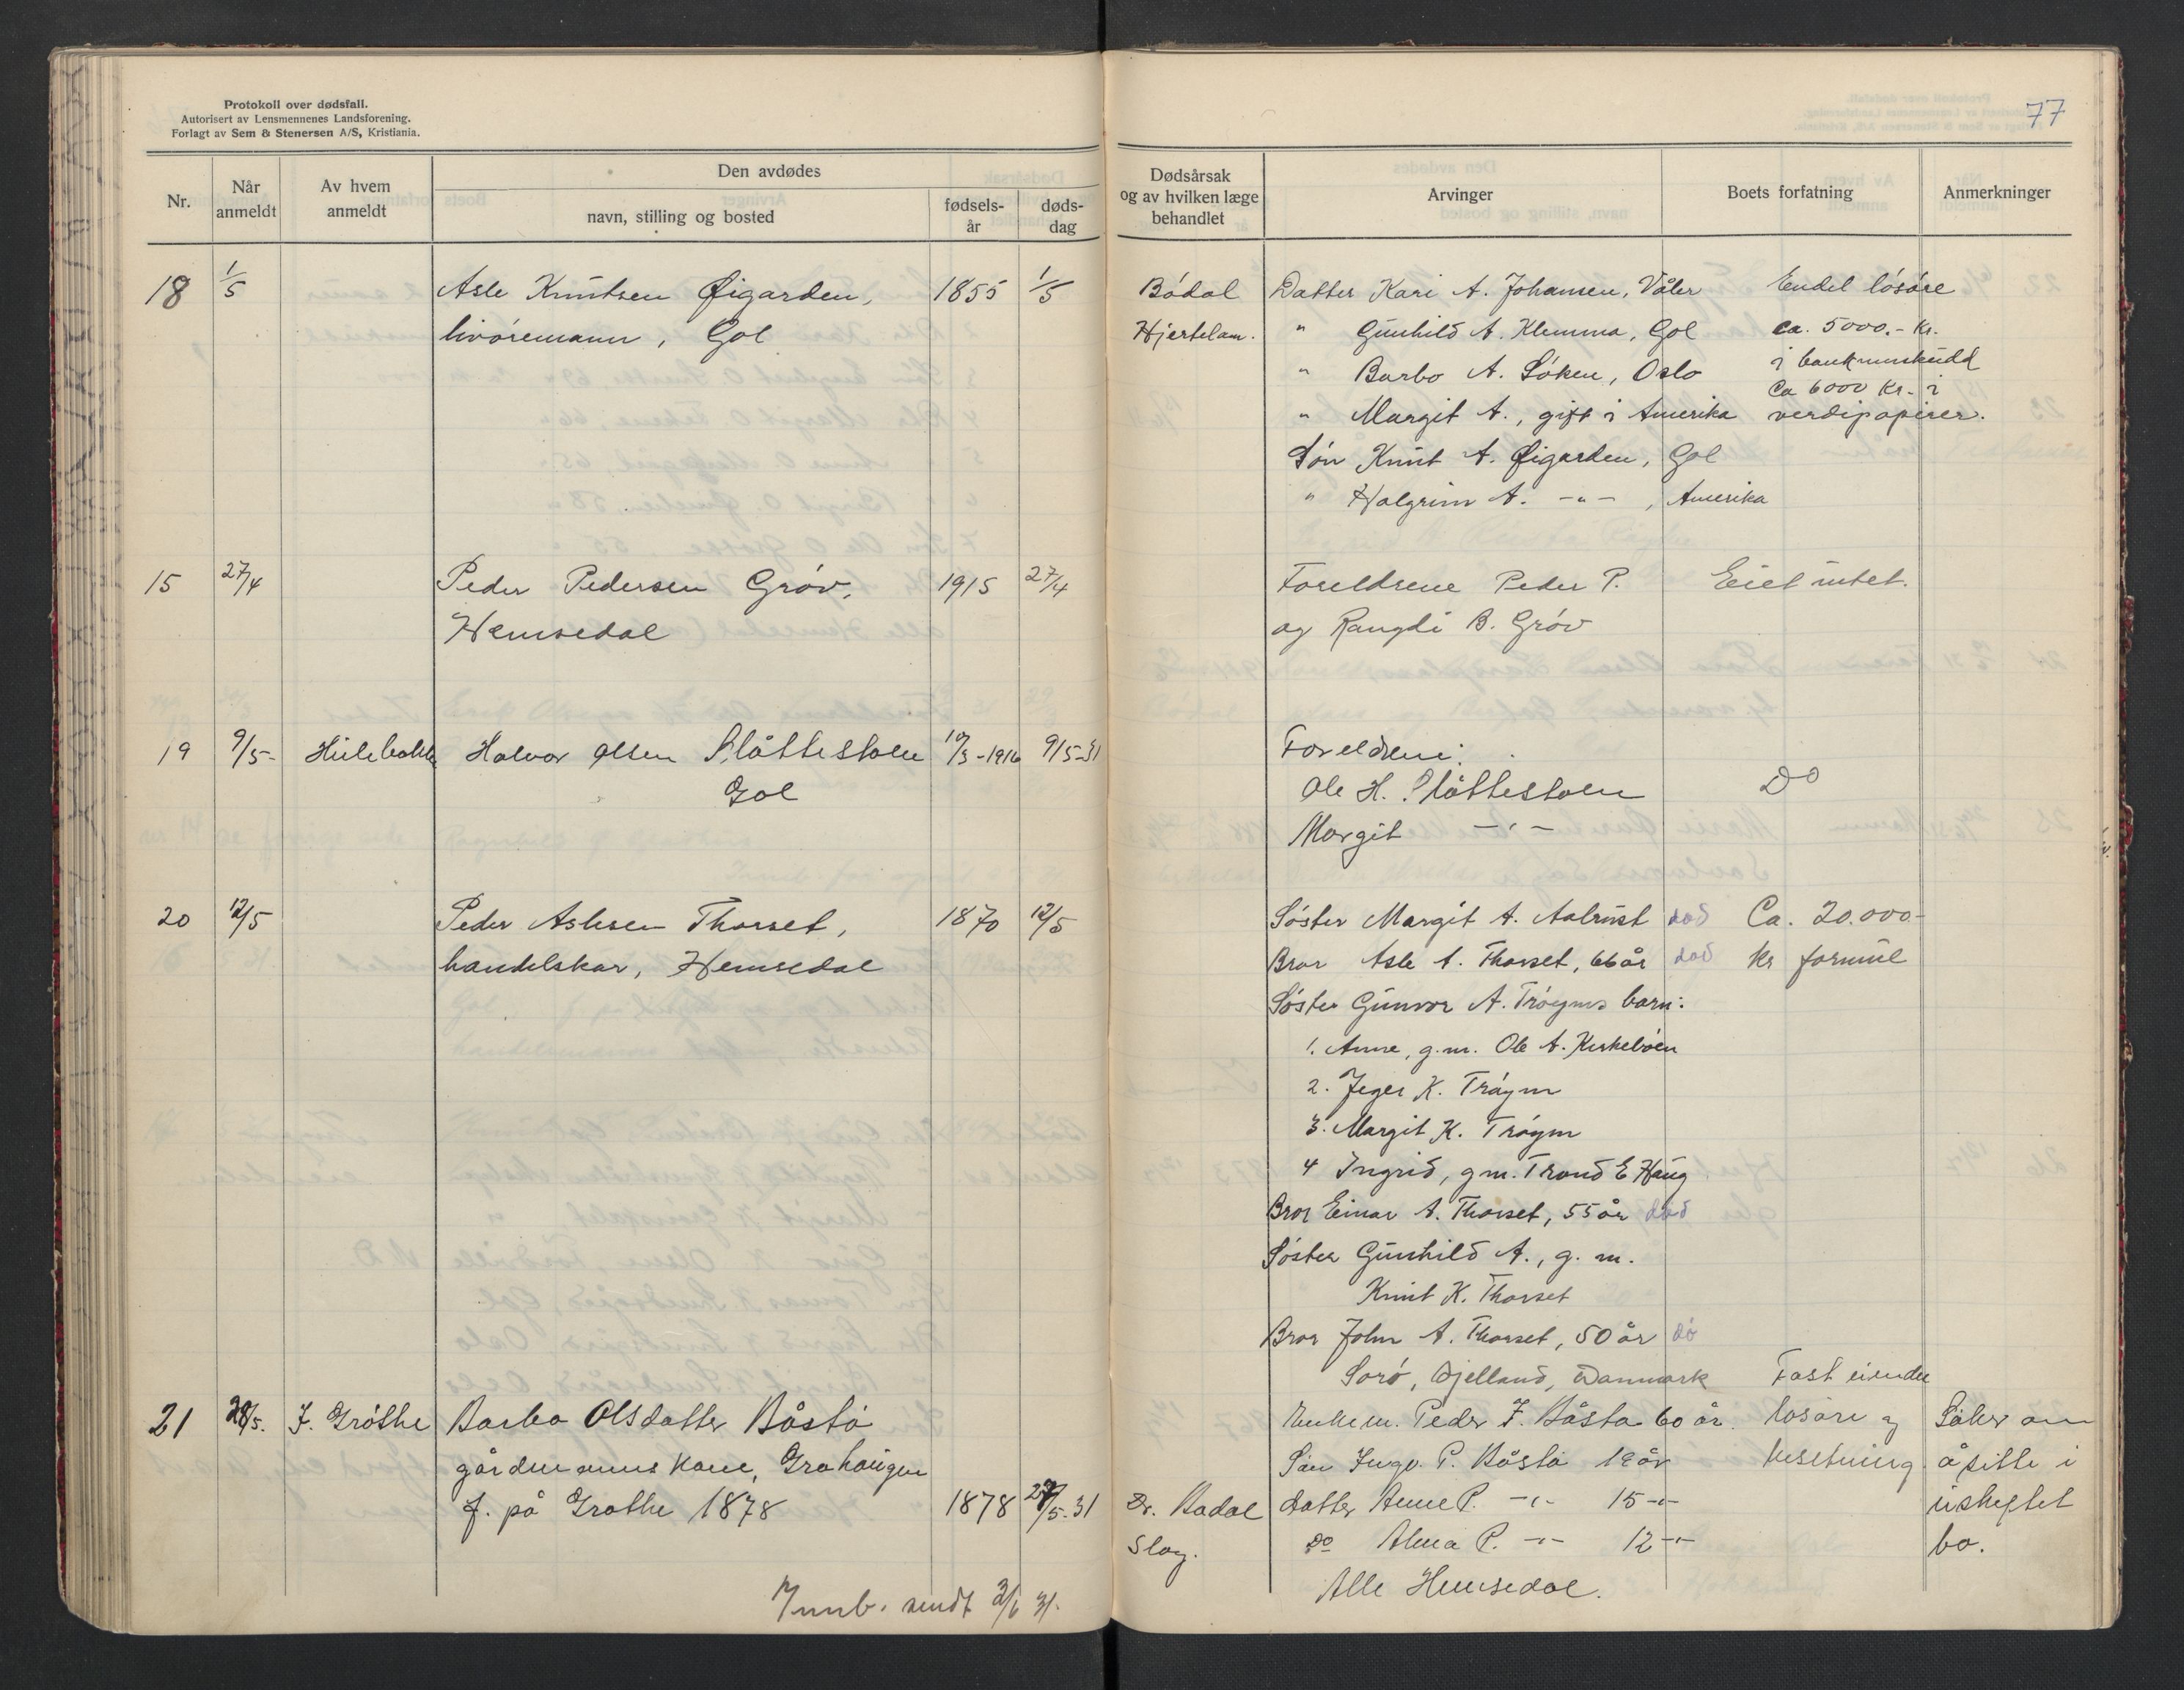 Protokoll over dødsfall.
Autorisert av Lensmennenes Landsforening.
Forlagt av Sem & Stenersen A/S, Kristiania.
77
Nr.
Når anmeldt
Av hvem anmeldt
Den avdødes
navn, stilling og bosted
fødsels-år
døds-dag
Dødsårsak og av hvilken læge behandlet
Arvinger
Boets forfatning
Anmerkninger
18 1/5 Asle Knutsen Øigarden, 1855 1/5
livøremann, Gol
Bödal
Hjertelam.
Datter Kari A. Johansen, Våler
" Gunhild A. Klemma, Gol
" Barbo A. Löken, Oslo
" Margit A., gift i Amerika
Sön Knut A. Øigarden, Gol
" Halgrim A. -"- , Amerika
Endel lösöre
ca. 5000.- kr.
i bankinnskudd
Ca 6000 kr. i
verdipapirer.
15 27/4 Peder Pedersen Gröv, 1915 27/4
Hemsedal
Foreldrene Peder P.
og Rangdi B. Gröv
Eiet intet.
19 9/5- Halvor Olsen Slåttestolen 9/5-31
Gol
Foreldrene:
Ole H. Slåttestolen
Margit -"-
Do
20 12/5 Peder Aslesen Thorset, 1870 12/5
handelskar, Hemsedal
Söster Margit A. Aalrust död
Bror Asle A. Thorset, 66 år död
Söster Gunvor A. Tröyms barn:
1. Anne, g.m. Ole A. Kirkeböen
2. Jeger K. Tröym
3. Margit K. Tröym
4 Ingrid, g.m. Trond E Haug
Bror Einar A. Thorset, 55 år död
Söster Gunhild A., g. m.
Knut K. Thorset
Bror John A. Thorset, 50 år dö
Sorö, Sjelland, Danmark
Ca. 20.000-
kr formue
21 28/5. J. Gröthe Barbo Olsdatter Båstö
gårdmanns kone, Grøhaugen
f. på Grøthe 1878 1878 27/5-31
Dr. Bödal
Slag.
Enkem. Peder J. Båstö 60 år.
Sön Ingv. P. Båstö 18 år
datter Anne P. -"- 15 -"-
Do Alma P. -"- 12 -"-
Alle Hemsedal.
Fast eiendom
lösöre og
besetning
Söker om
å sitte i
uskiftet
bo.
Innb. sendt 3/6 31.